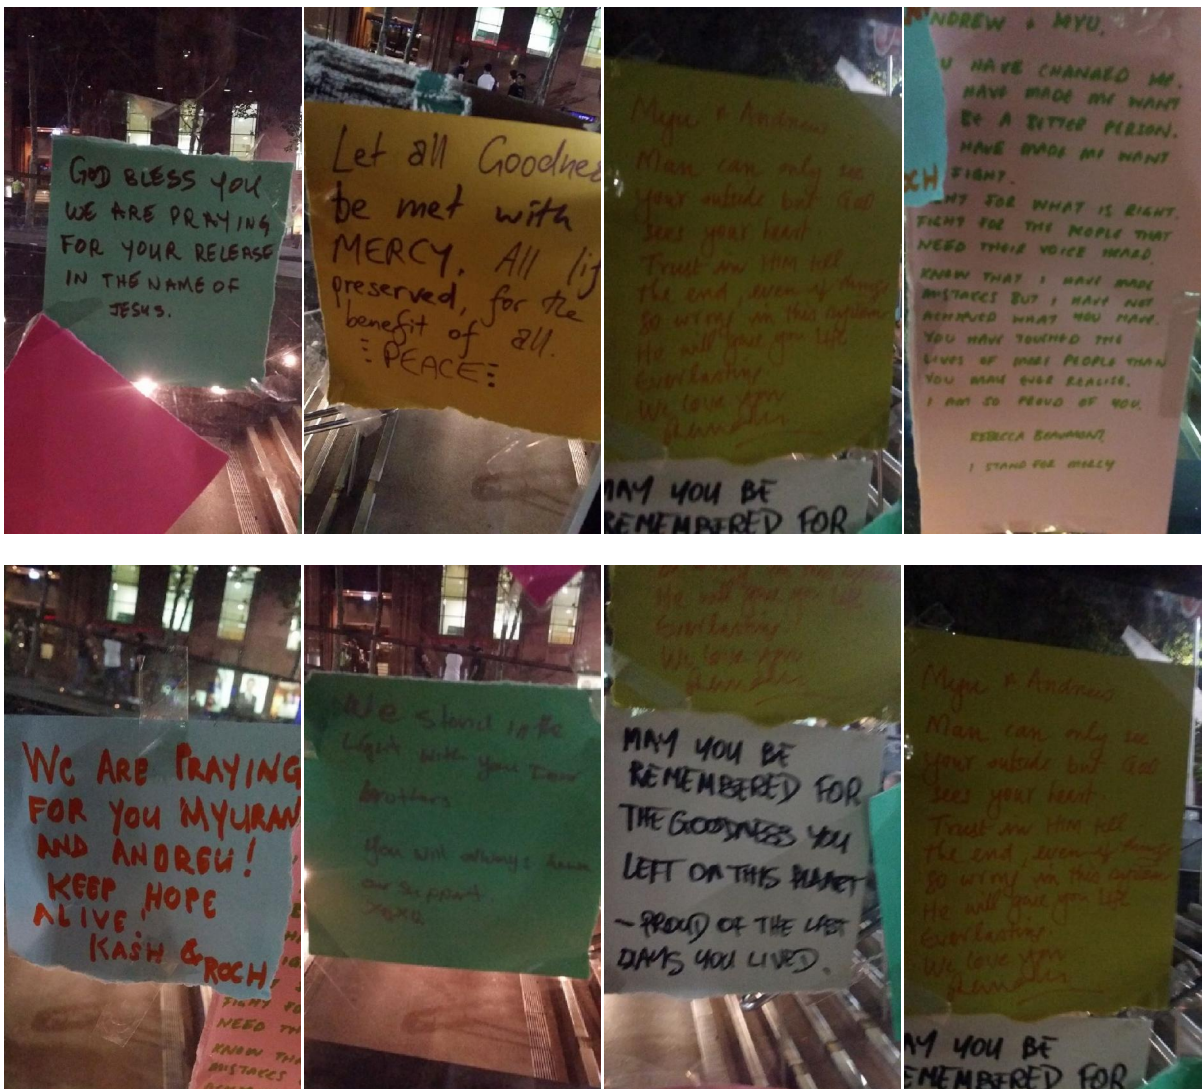 GOD BLESS YOU
WE ARE PRAYING
FOR YOUR RELEASE
IN THE NAME OF
JESUS.
Let all Goodnes
be met with
MERCY. All lif
preserved, for the
benefit of all.
PEACE
Myu & Andrew
Man can only see
your outside but God
sees your heart
Trust in HIM till
the end, even if things
go wrong in this
He will give you life
Everlasting.
We love you
MAY YOU BE
REMEMBERED FOR
NDREW & MYU,
U HAVE CHANGED ME.
HAVE MADE ME WANT
BE A BETTER PERSON.
HAVE MADE ME WANT
FIGHT.
CH
HT FOR WHAT IS RIGHT.
FIGHT FOR THE PEOPLE THAT
NEED THEIR VOICE HEARD.
KNOW THAT I HAVE MADE
MISTAKES BUT I HAVE NOT
ACHIEVED WHAT YOU HAVE.
YOU HAVE TOUCHED THE
LIVES OF MORE PEOPLE THAN
YOU MAY EVER REALISE.
I AM SO PROUD OF YOU.
REBECCA BEAUMONT
I STAND FOR MERCY
WE ARE PRAYING
FOR YOU MYURAN
AND ANDREW!
KEEP HOPE
ALIVE!
KASH & ROCH
FIGHT FO
NEED TH
KNOW THA
MISTAKES
We stand in the
light with you
brothers
you will always have
our support.
He will give you life
Everlasting.
We love you
MAY YOU BE
REMEMBERED FOR
THE GOODNESS YOU
LEFT ON THIS PLANET
~ PROUD OF THE LAST
DAYS YOU LIVED.
Myu & Andrew
Man can only see
your outside but God
sees your heart
Trust in HIM till
the end, even if things
go wrong in this
He will give you life
Everlasting.
We love you
AY YOU BE
EMEMBERED FOR